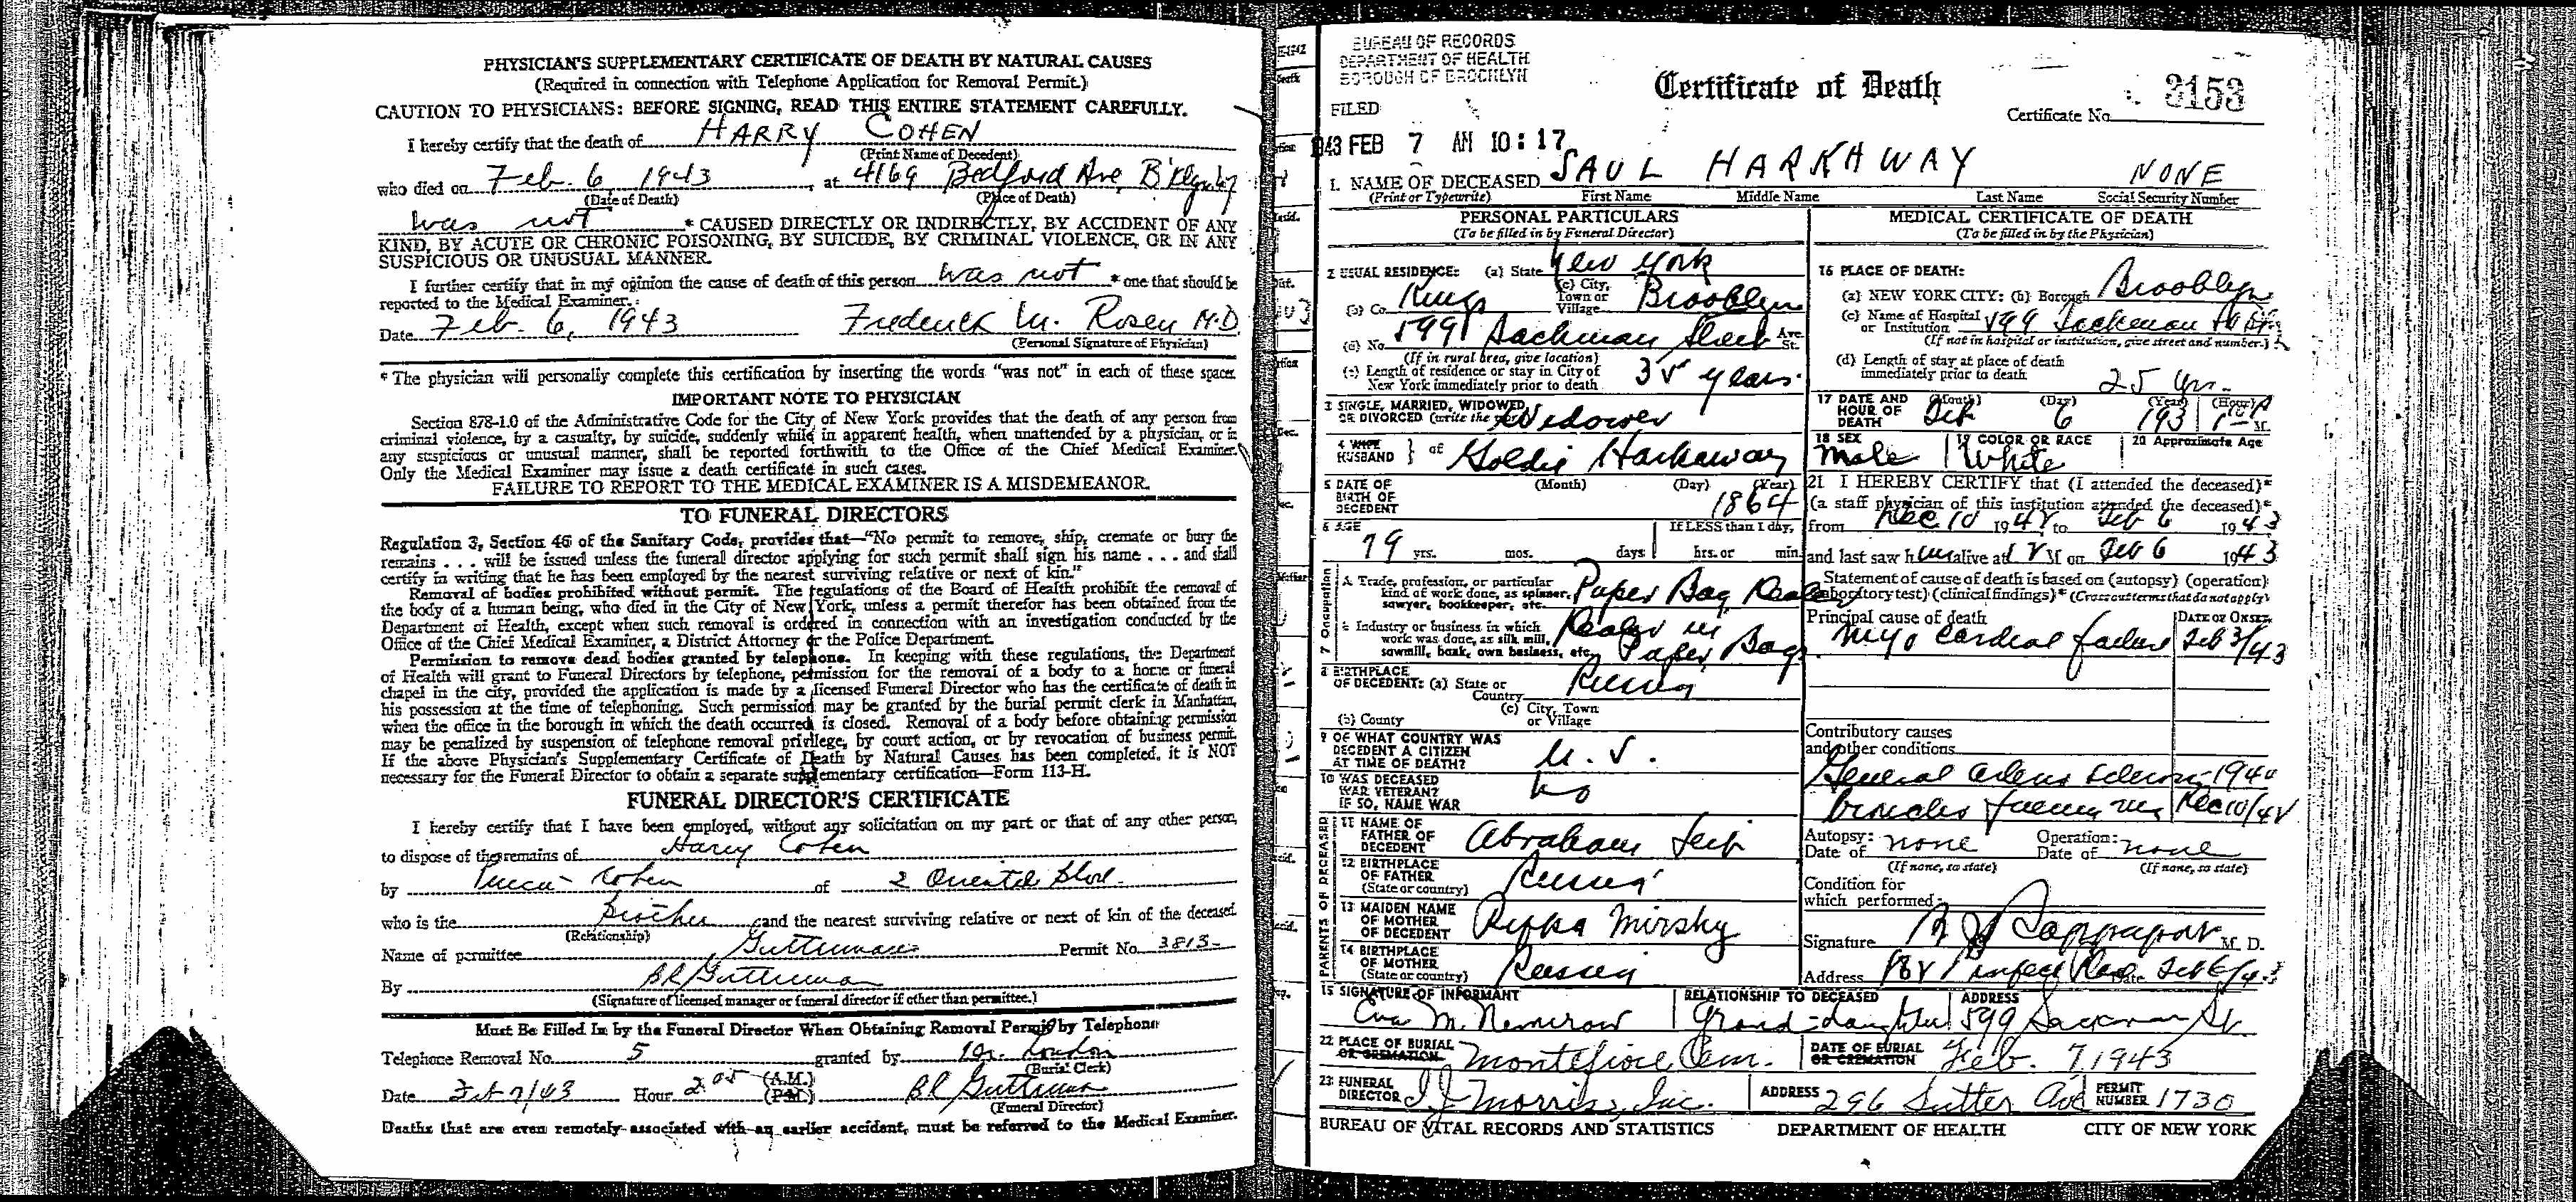 PHYSICIAN'S SUPPLEMENTARY CERTIFICATE OF DEATH BY NATURAL CAUSES
(Required in connection with Telephone Application for Removal Permit.)
CAUTION TO PHYSICIANS: BEFORE SIGNING, READ THIS ENTIRE STATEMENT CAREFULLY.
I hereby certify that the death of HARRY COHEN
(Print Name of Decedent)
who died on Feb. 6, 1943, at 4169 Bedford Ave, B'klyn
(Date of Death) (Place of Death)
was not * CAUSED DIRECTLY OR INDIRECTLY, BY ACCIDENT OF ANY
KIND, BY ACUTE OR CHRONIC POISONING, BY SUICIDE, BY CRIMINAL VIOLENCE, OR IN ANY
SUSPICIOUS OR UNUSUAL MANNER.
I further certify that in my opinion the cause of death of this person was not * one that should be
reported to the Medical Examiner.
Date Feb. 6, 1943 Frederick M. Rosen M.D.
(Personal Signature of Physician)
* The physician will personally complete this certification by inserting the words "was not" in each of these spaces.
IMPORTANT NOTE TO PHYSICIAN
Section 878-1.0 of the Administrative Code for the City of New York provides that the death of any person from
criminal violence, by a casualty, by suicide, suddenly while in apparent health, when unattended by a physician, or in
any suspicious or unusual manner, shall be reported forthwith to the Office of the Chief Medical Examiner.
Only the Medical Examiner may issue a death certificate in such cases.
FAILURE TO REPORT TO THE MEDICAL EXAMINER IS A MISDEMEANOR.
TO FUNERAL DIRECTORS
Regulation 3, Section 46 of the Sanitary Code, provides that—"No permit to remove, ship, cremate or bury the
remains . . . will be issued unless the funeral director applying for such permit shall sign his name . . . and shall
certify in writing that he has been employed by the nearest surviving relative or next of kin."
Removal of bodies prohibited without permit. The regulations of the Board of Health prohibit the removal of
the body of a human being, who died in the City of New York, unless a permit therefor has been obtained from the
Department of Health, except when such removal is ordered in connection with an investigation conducted by the
Office of the Chief Medical Examiner, a District Attorney or the Police Department.
Permission to remove dead bodies granted by telephone. In keeping with these regulations, the Department
of Health will grant to Funeral Directors by telephone, permission for the removal of a body to a home or funeral
chapel in the city, provided the application is made by a licensed Funeral Director who has the certificate of death in
his possession at the time of telephoning. Such permission may be granted by the burial permit clerk in Manhattan,
when the office in the borough in which the death occurred is closed. Removal of a body before obtaining permission
may be penalized by suspension of telephone removal privilege, by court action, or by revocation of business permit.
If the above Physician's Supplementary Certificate of Death by Natural Causes has been completed, it is NOT
necessary for the Funeral Director to obtain a separate supplementary certification—Form 113-H.
FUNERAL DIRECTOR'S CERTIFICATE
I hereby certify that I have been employed, without any solicitation on my part or that of any other person,
to dispose of the remains of Harry Cohen
by Cohen of 2 Oriental Blvd.
who is the brother and the nearest surviving relative or next of kin of the deceased.
(Relationship)
Name of permittee Gutterman Permit No. 3813
By BL Gutterman
(Signature of licensed manager or funeral director if other than permittee.)
Must Be Filled In by the Funeral Director When Obtaining Removal Permit by Telephone
Telephone Removal No. 5 granted by London
(Burial Clerk)
Date Feb 7/43 Hour 2.05 (A.M.) (P.M.) BL Gutterman
(Funeral Director)
Deaths that are even remotely associated with an earlier accident, must be referred to the Medical Examiner.
BUREAU OF RECORDS
DEPARTMENT OF HEALTH
BOROUGH OF BROOKLYN
Certificate of Death
FILED
Certificate No. 3153
1943 FEB 7 AM 10:17
1. NAME OF DECEASED SAUL HARKAWAY NONE
(Print or Typewrite) First Name Middle Name Last Name Social Security Number
PERSONAL PARTICULARS
(To be filled in by Funeral Director)
2 USUAL RESIDENCE: (a) State New York
(b) Co. Kings (c) City, Town or Village Brooklyn
(d) No. 599 Sackman Street Ave. St.
(If in rural area, give location)
(e) Length of residence or stay in City of
New York immediately prior to death 35 years.
3 SINGLE, MARRIED, WIDOWED,
OR DIVORCED (write the word) Widower
4 WIFE HUSBAND } of Goldie Harkaway
5 DATE OF BIRTH OF DECEDENT (Month) (Day) (Year) 1864
6 AGE 79 yrs. mos. days If LESS than 1 day, hrs. or min.
7 Occupation
A. Trade, profession, or particular
kind of work done, as spinner,
sawyer, bookkeeper, etc. Paper Bag Dealer
B. Industry or business in which
work was done, as silk mill,
sawmill, bank, own business, etc. Dealer in Paper Bags
8 BIRTHPLACE
OF DECEDENT: (a) State or Country Russia
(b) County (c) City, Town or Village
9 OF WHAT COUNTRY WAS
DECEDENT A CITIZEN
AT TIME OF DEATH? U. S.
10 WAS DECEASED
WAR VETERAN?
IF SO, NAME WAR no
PARENTS OF DECEASED
11 NAME OF FATHER OF DECEDENT Abraham Leib
12 BIRTHPLACE OF FATHER (State or country) Russia
13 MAIDEN NAME OF MOTHER OF DECEDENT Rifka Mirsky
14 BIRTHPLACE OF MOTHER (State or country) Russia
MEDICAL CERTIFICATE OF DEATH
(To be filled in by the Physician)
16 PLACE OF DEATH:
(a) NEW YORK CITY: (b) Borough Brooklyn
(c) Name of Hospital or Institution 599 Sackman St
(If not in hospital or institution, give street and number.)
(d) Length of stay at place of death
immediately prior to death 25 yrs.
17 DATE AND HOUR OF DEATH (Month) Feb (Day) 6 (Year) 193 (Hour) M.
18 SEX Male 19 COLOR OR RACE White 20 Approximate Age
21 I HEREBY CERTIFY that (I attended the deceased)*
(a staff physician of this institution attended the deceased)*
from Dec 10 1942 to Feb 6 1943
and last saw him alive at M on Feb 6 1943
Statement of cause of death is based on (autopsy) (operation)
(laboratory test) (clinical findings)* (Cross out terms that do not apply)
Principal cause of death DATE OF ONSET
Myocardial failure Feb 3/43
Contributory causes
and other conditions
General arterio sclerosis 1940
Dec 10/42
Autopsy: Date of none Operation: Date of none
(If none, so state) (If none, so state)
Condition for
which performed
Signature Rappaport M. D.
Address Date Feb 6/43
15 SIGNATURE OF INFORMANT RELATIONSHIP TO DECEASED ADDRESS
Eva M. Nemerow Grand-daughter 599 Sackman St.
22 PLACE OF BURIAL OR CREMATION Montefiore Cem. DATE OF BURIAL OR CREMATION Feb. 7, 1943
23 FUNERAL DIRECTOR I J Morris, Inc. ADDRESS 296 Sutter Ave PERMIT NUMBER 1730
BUREAU OF VITAL RECORDS AND STATISTICS DEPARTMENT OF HEALTH CITY OF NEW YORK